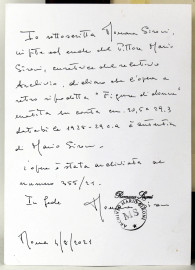 Io sottoscritta Romana Sironi,
erede di Mario
Sironi, curatrice del relativo
Archivio, dichiaro che l'opera a
retro riprodotta "Figura di donna"
matita su carta cm. 20,5 x 29,3
databile 1928-29 è autentica
di Mario Sironi.
L'opera è stata archiviata al
numero 355/21.
In fede
Romana Sironi
ARCHIVIO MARIO SIRONI
MS
Roma 4/8/2021